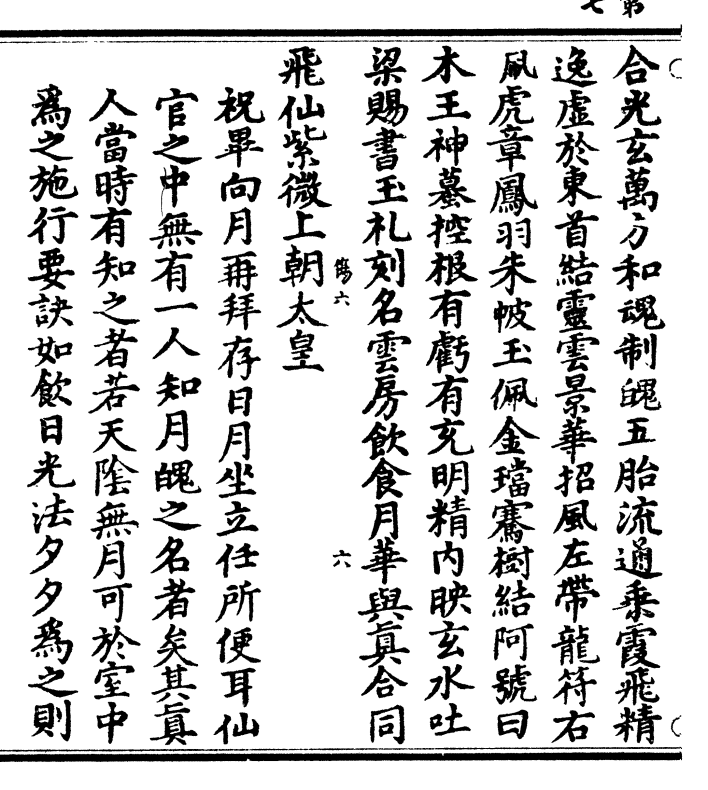 第
七
合光玄萬方和魂制魄五胎流通乘霞飛精
逸虛於東首結靈雲景華招風左帶龍符右
佩虎章鳳羽朱帔玉佩金璫騫樹結阿號曰
木王神蟇控根有虧有充明精內映玄水吐
梁賜書玉札刻名雲房飲食月華與眞合同
傷六
六
飛仙紫微上朝太皇
祝畢向月再拜存日月坐立任所便耳仙
官之中無有一人知月魄之名者矣其眞
人當時有知之者若天陰無月可於室中
爲之施行要訣如飲日光法夕夕爲之則